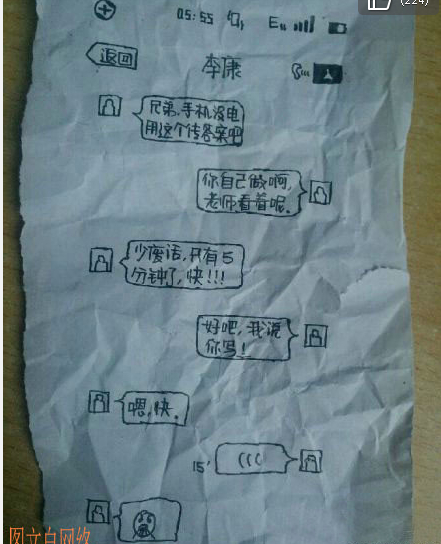 (224)
05:55 E
返回
李康
兄弟,手机没电
用这个传答案吧
你自己做啊,
老师看着呢。
少废话,只有5
分钟了,快!!!
好吧,我说
你写!
嗯,快。
15'
(((
图文自网络